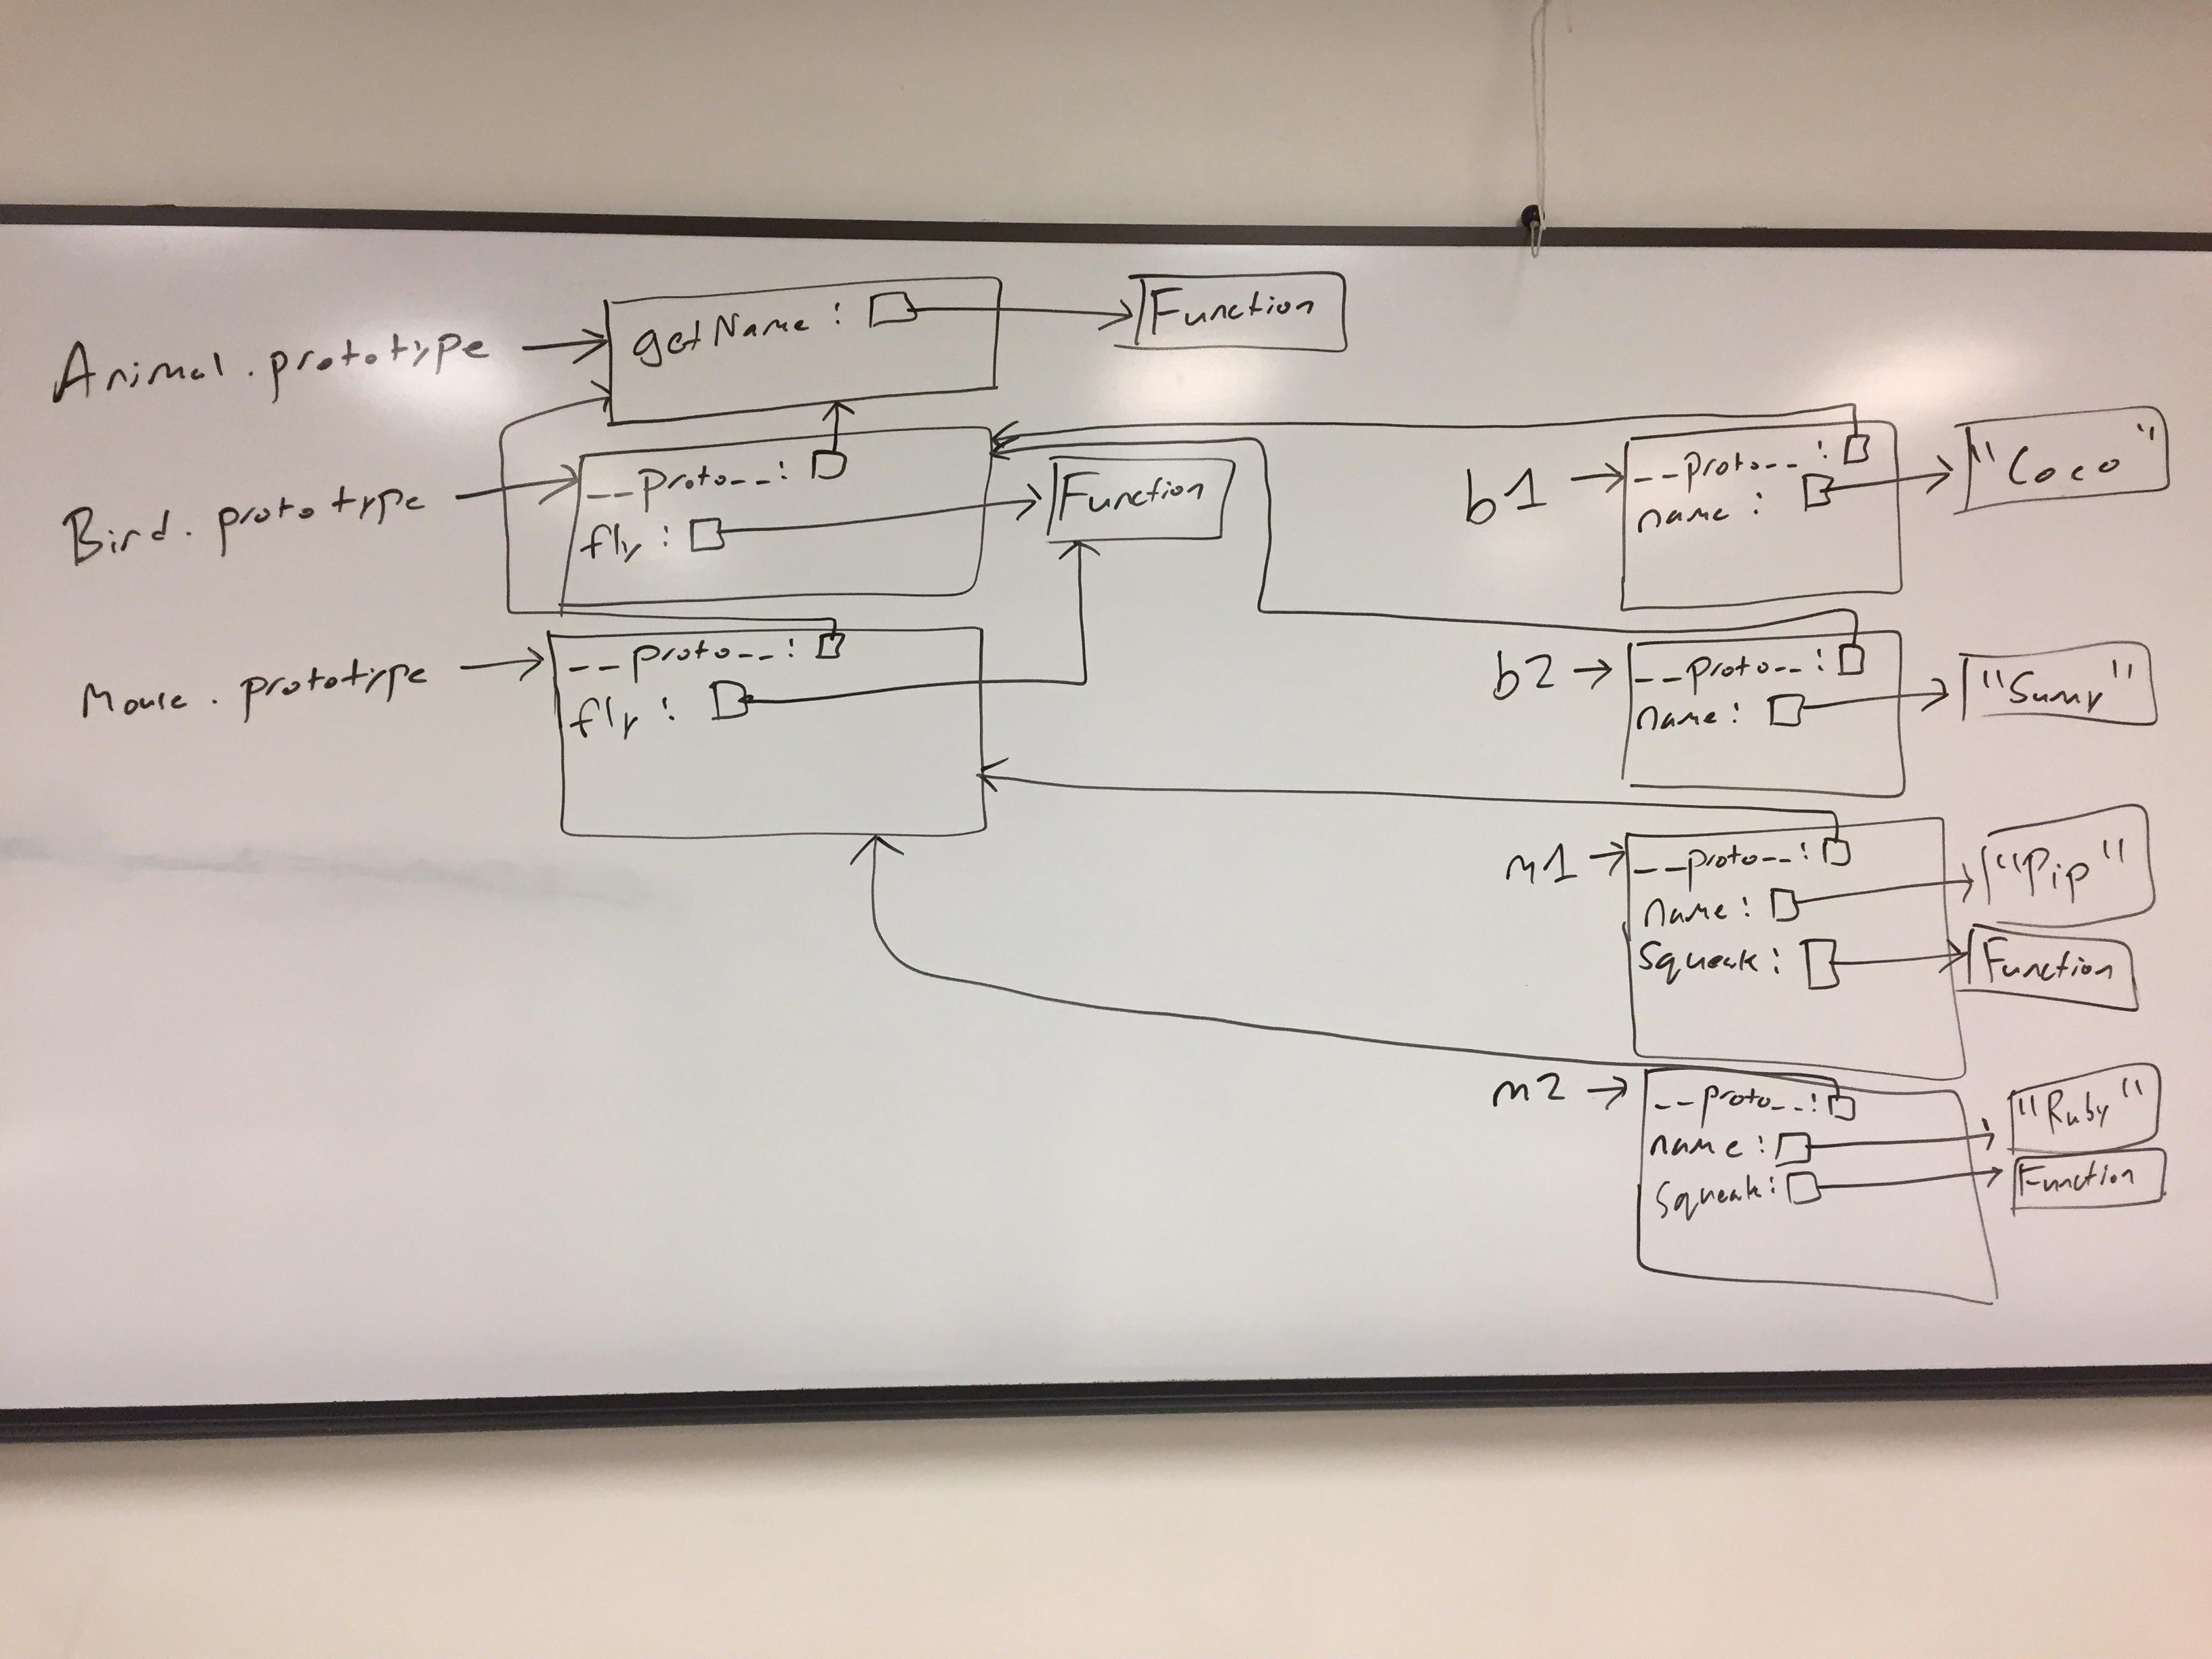 Animal.prototype
getName:
Function
Bird.prototype
__proto__:
fly:
Function
Mouse.prototype
__proto__:
fly:
b1
__proto__:
name:
"Coco"
b2
__proto__:
name:
"Sunny"
m1
__proto__:
name:
squeak:
"Pip"
Function
m2
__proto__:
name:
squeak:
"Ruby"
Function